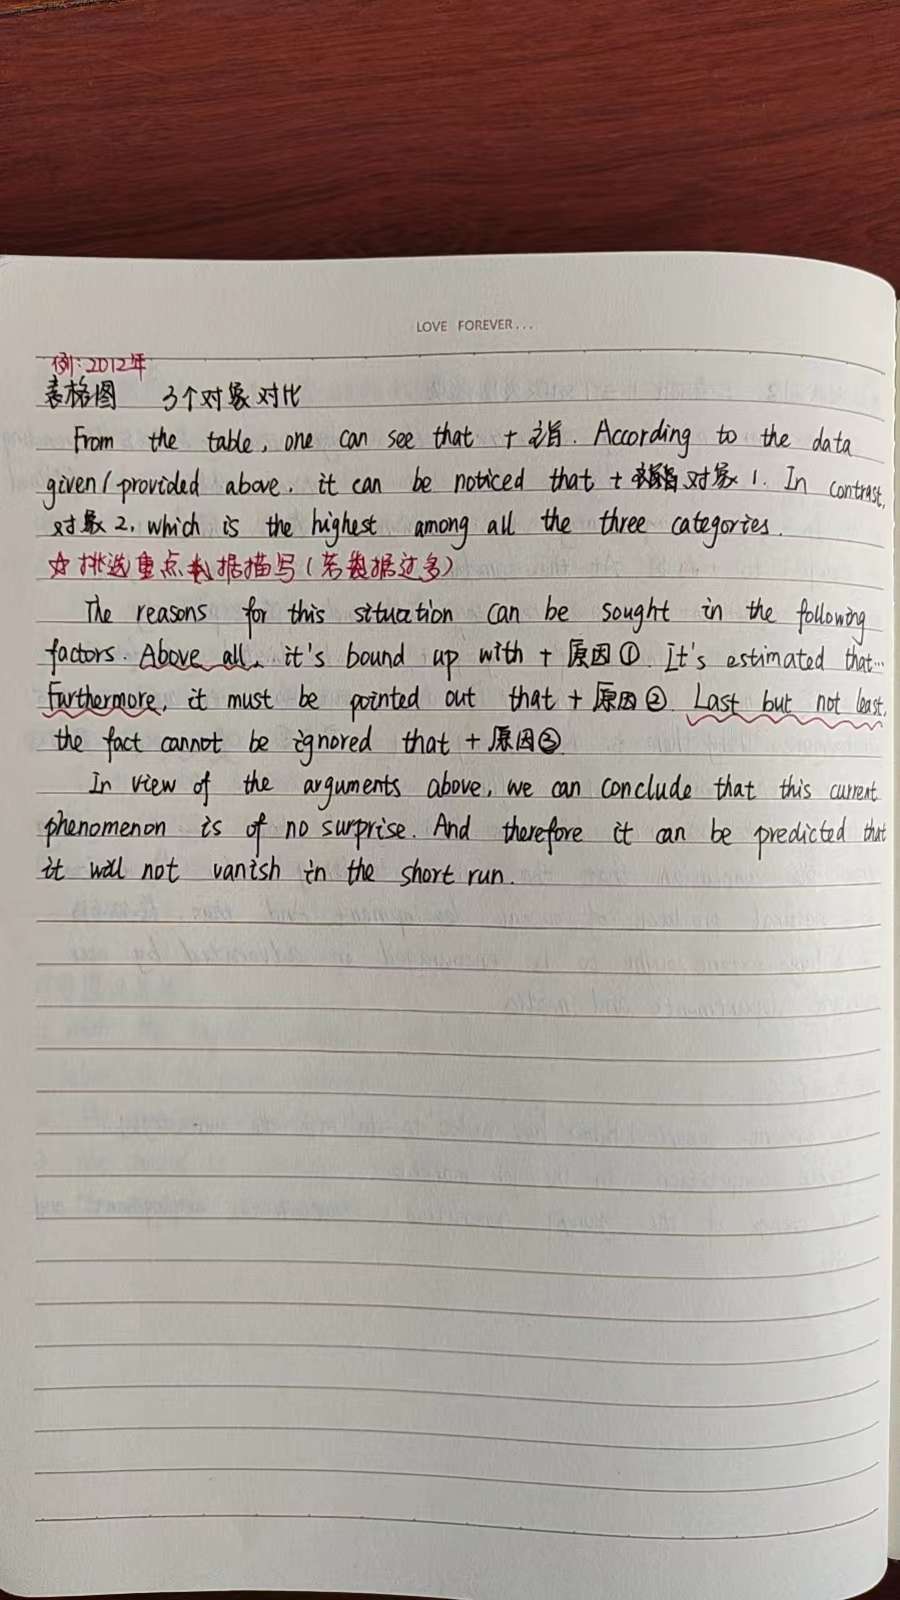 LOVE FOREVER...
例:2012年
表格图 3个对象对比
From the table, one can see that + 主旨. According to the data
given/provided above, it can be noticed that + 对象1. In contrast,
对象2, which is the highest among all the three categories.
☆挑选重点数据描写(若数据过多)
The reasons for this situation can be sought in the following
factors. Above all, it's bound up with + 原因①. It's estimated that...
Furthermore, it must be pointed out that + 原因②. Last but not least,
the fact cannot be ignored that + 原因③.
In view of the arguments above, we can conclude that this current
phenomenon is of no surprise. And therefore it can be predicted that
it will not vanish in the short run.